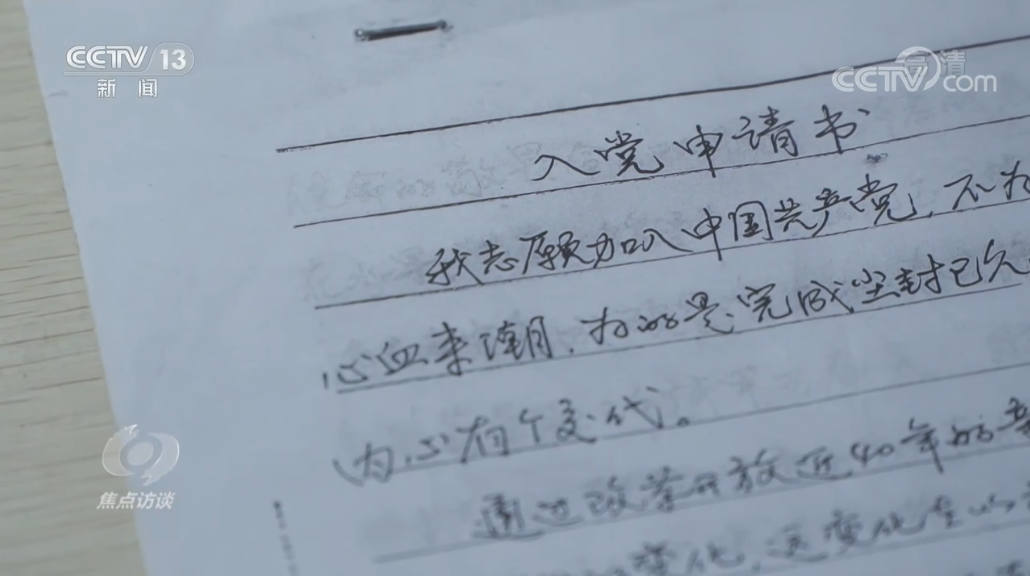 CCTV 13
新闻
高清
CCTV.com
入党申请书
我志愿加入中国共产党，不为
心血来潮，为的是完成尘封已久
内心有个交代。
通过改革开放近40年的
变化，这变化在以
焦点访谈